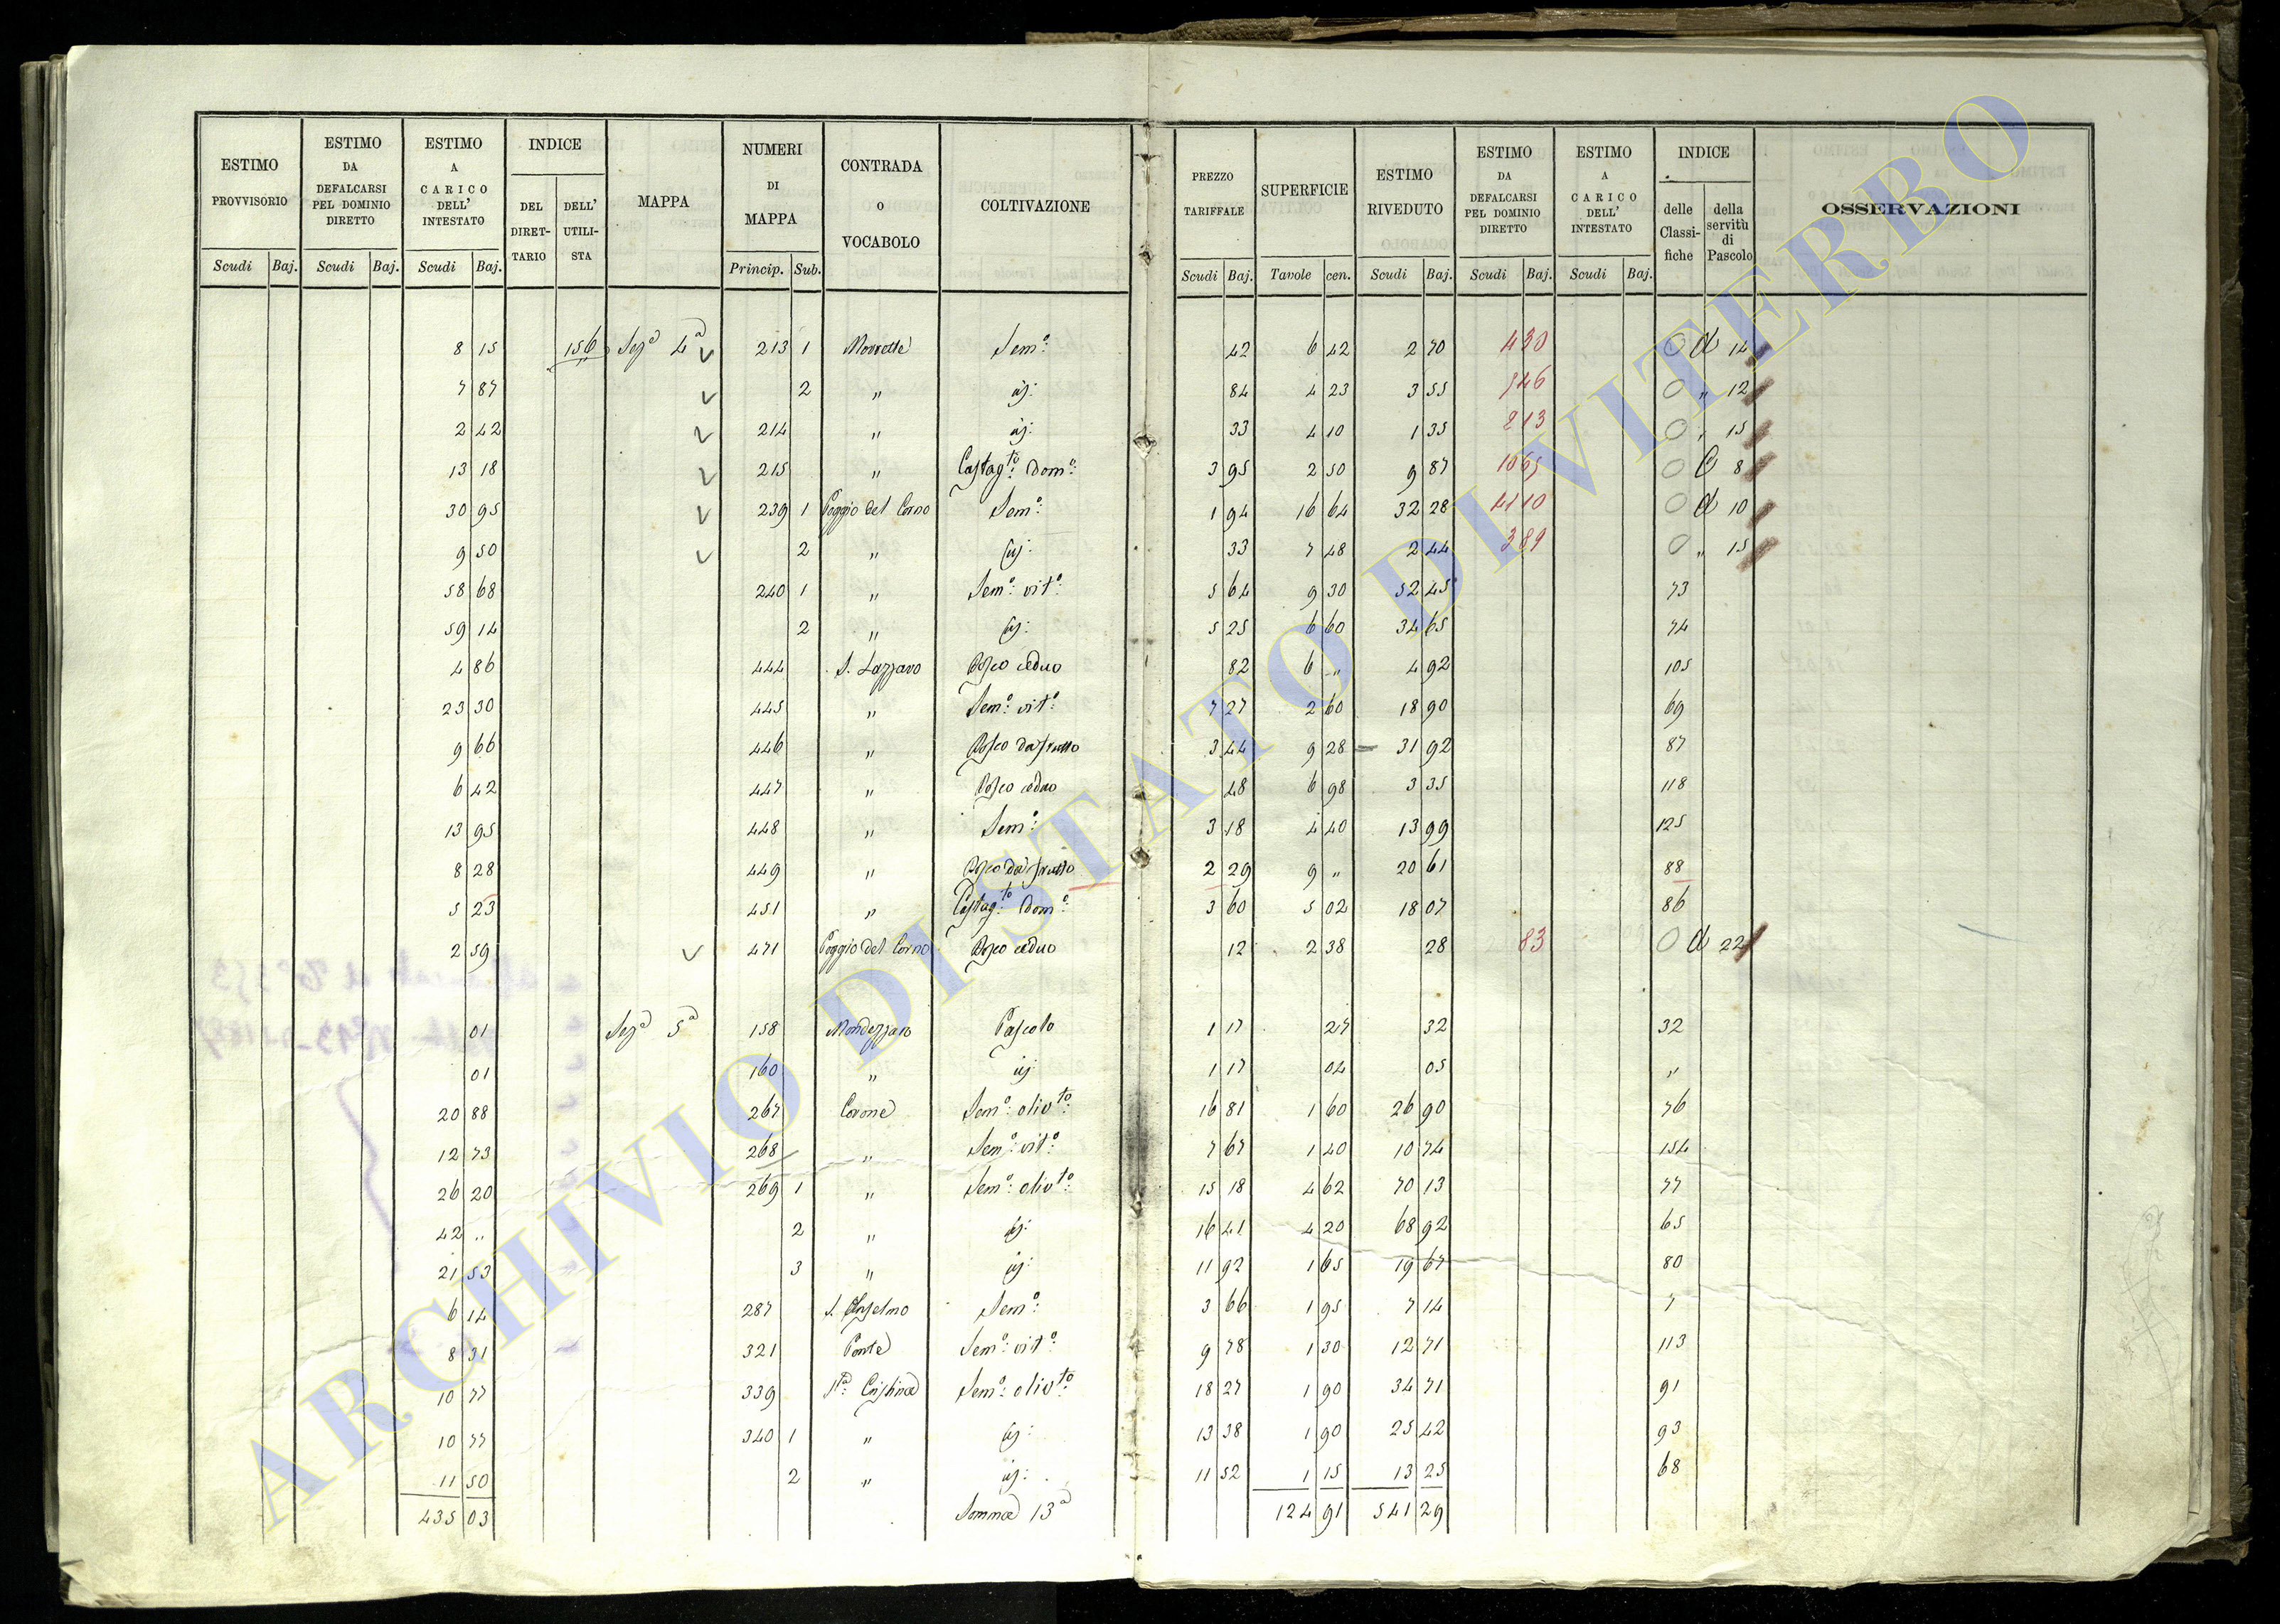 ESTIMO PROVVISORIO
Scudi Baj.
ESTIMO DA DEFALCARSI PEL DOMINIO DIRETTO
Scudi Baj.
ESTIMO A CARICO DELL' INTESTATO
Scudi Baj.
INDICE
DEL DIRET-TARIO
DELL' UTILI-STA
MAPPA
NUMERI DI MAPPA
Princip. Sub.
CONTRADA O VOCABOLO
COLTIVAZIONE
PREZZO TARIFFALE
Scudi Baj.
SUPERFICIE
Tavole cen.
ESTIMO RIVEDUTO
Scudi Baj.
ESTIMO DA DEFALCARSI PEL DOMINIO DIRETTO
Scudi Baj.
ESTIMO A CARICO DELL' INTESTATO
Scudi Baj.
INDICE
delle Classi-fiche
della servitù di Pascolo
OSSERVAZIONI
8 15 156 Sez.a 4a 213 1 Sem.o 42 6 42 2 70 430 O A 14
7 87 2 " id: 84 4 23 3 55 546 O " 12
2 42 214 " id: 33 4 10 1 35 213 O " 15
13 18 215 " Castag.to Dom.o 3 95 2 50 9 87 1065 O C 8
30 95 239 1 Poggio del Corno Sem.o 1 94 16 64 32 28 O A 10
9 50 2 " id: 33 7 48 2 44 389 O " 15
58 68 240 1 " Sem.o vit.o 5 64 9 30 52 45 73
59 14 2 " id: 5 25 6 60 34 65 74
4 86 444 S. Lazzaro Bosco ceduo 82 6 " 4 92 105
23 30 445 " Sem.o vit.o 7 27 2 60 18 90 69
9 66 446 " Bosco da frutto 3 44 9 28 31 92 87
6 42 447 " Bosco ceduo 48 6 98 3 35 118
13 95 448 " Sem.o 3 18 4 40 13 99 125
8 28 449 " Bosco da frutto 2 29 9 " 20 61 88
5 23 451 " Castag.to Dom.o 3 60 5 02 18 07 86
2 59 471 Poggio del Corno Bosco ceduo 12 2 38 28 83 O A 22
01 Sez.a 5a 158 Mondezzaro Pascolo 1 17 27 32 32
01 160 " id: 1 17 04 05 "
20 88 267 Corone Sem.o oliv.to 16 81 1 60 26 90 76
12 73 268 " Sem.o vit.o 7 67 1 40 10 74 154
26 20 269 1 " Sem.o oliv.to 15 18 4 62 70 13 77
42 " 2 " id: 16 41 4 20 68 92 65
21 53 3 " id: 11 92 1 65 19 67 80
6 14 287 S. Anselmo Sem.o 3 66 1 95 7 14 7
8 31 321 Ponte Sem.o vit.o 9 78 1 30 12 71 113
10 77 339 S.ta Cristina Sem.o oliv.to 18 27 1 90 34 71 91
10 77 340 1 " id: 13 38 1 90 25 42 93
11 50 2 " id: 11 52 1 15 13 25 68
435 03 Somma 13a 124 91 541 29
ARCHIVIO DI STATO DI VITERBO